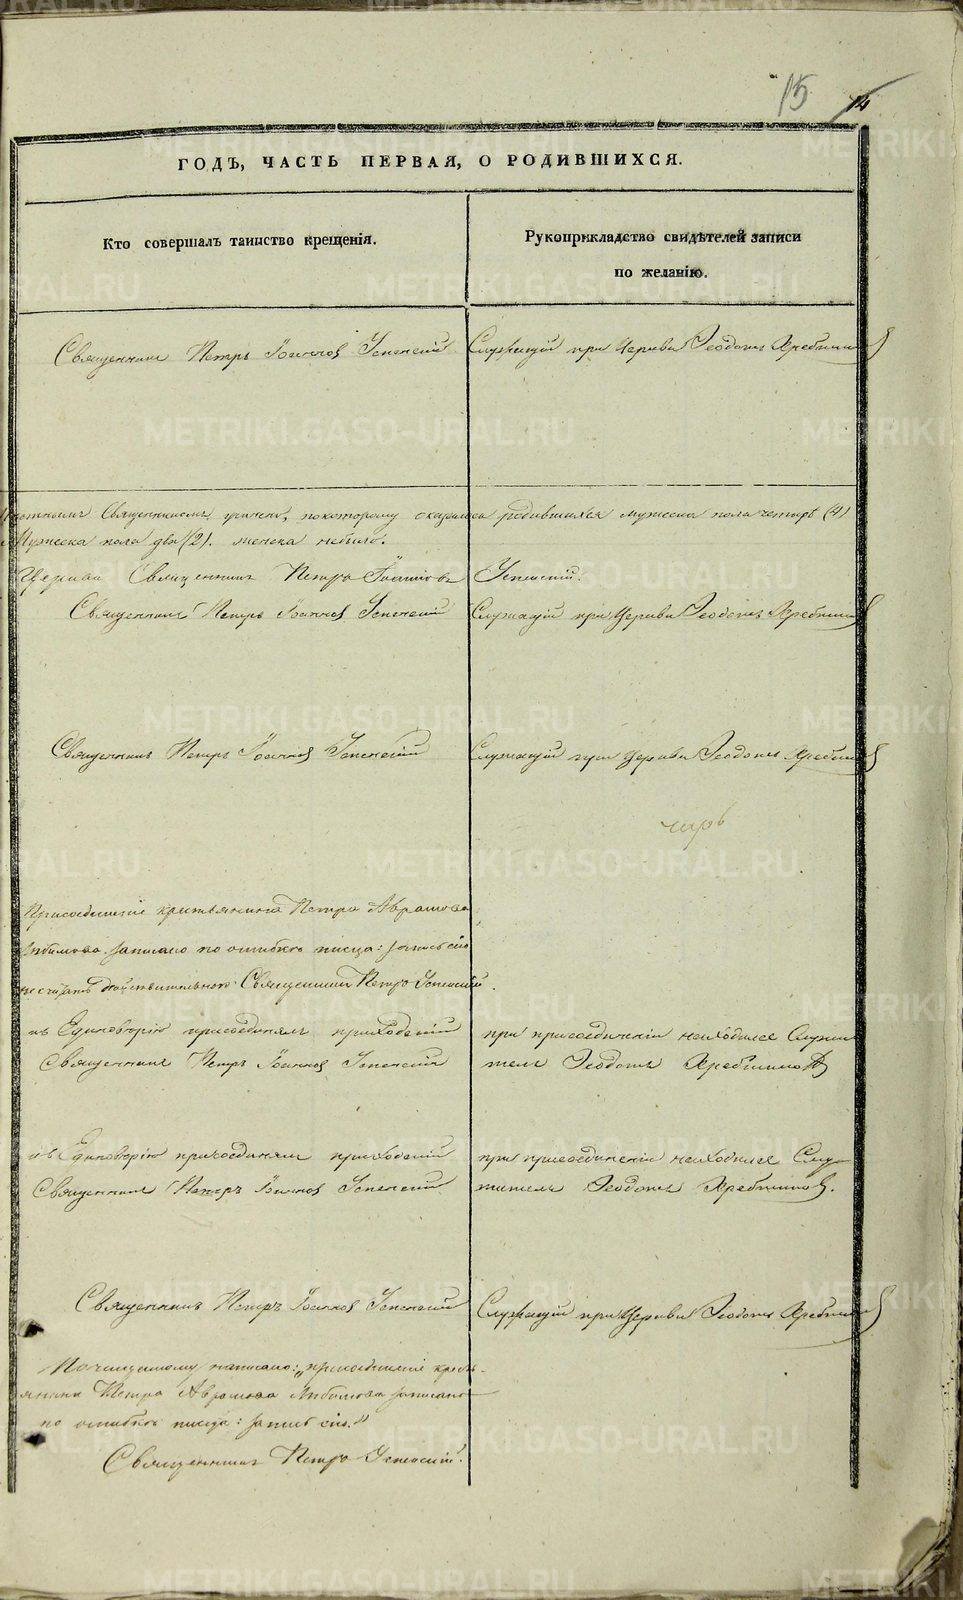 15 14
ГОДЪ, ЧАСТЬ ПЕРВАЯ, О РОДИВШИХСЯ.
Кто совершалъ таинство крещенія.
Рукоприкладство свидѣтелей записи
по желанію.
Священникъ Петръ Іоанновъ Успенскій
Служащій при Церкви Ѳеодотъ Хребтиковъ
Священникомъ по которому оказалось родившихся мужеска пола четыре (4)
Мужеска пола два (2). женска небыло.
Церкви Священникъ Петръ Іоанновъ Успенскій.
Священникъ Петръ Іоанновъ Успенскій
Служащій при Церкви Ѳеодотъ
Священникъ Петръ Іоанновъ Успенскій
Служащій при Церкви Ѳеодотъ
Присоединеніе крестьянина Петра Аврамова
записано по ошибкѣ писца: запись сію
не считать дѣйствительною Священникъ Петръ Успенскій.
къ Единовѣрію присоединялъ приходскій
Священникъ Петръ Іоанновъ Успенскій
при присоединеніи находился Служи
тель Ѳеодотъ
къ Единовѣрію присоединялъ приходскій
Священникъ Петръ Іоанновъ Успенскій
при присоединеніи находился Слу
житель Ѳеодотъ
Священникъ Петръ Іоанновъ Успенскій
Служащій при Церкви Ѳеодотъ
По чищенному написано: „присоединеніе кресть-
янина Петра Аврамова записано
по ошибкѣ писца: запись сію"
Священникъ Петръ Успенскій.
METRIKI.GASO-URAL.RU